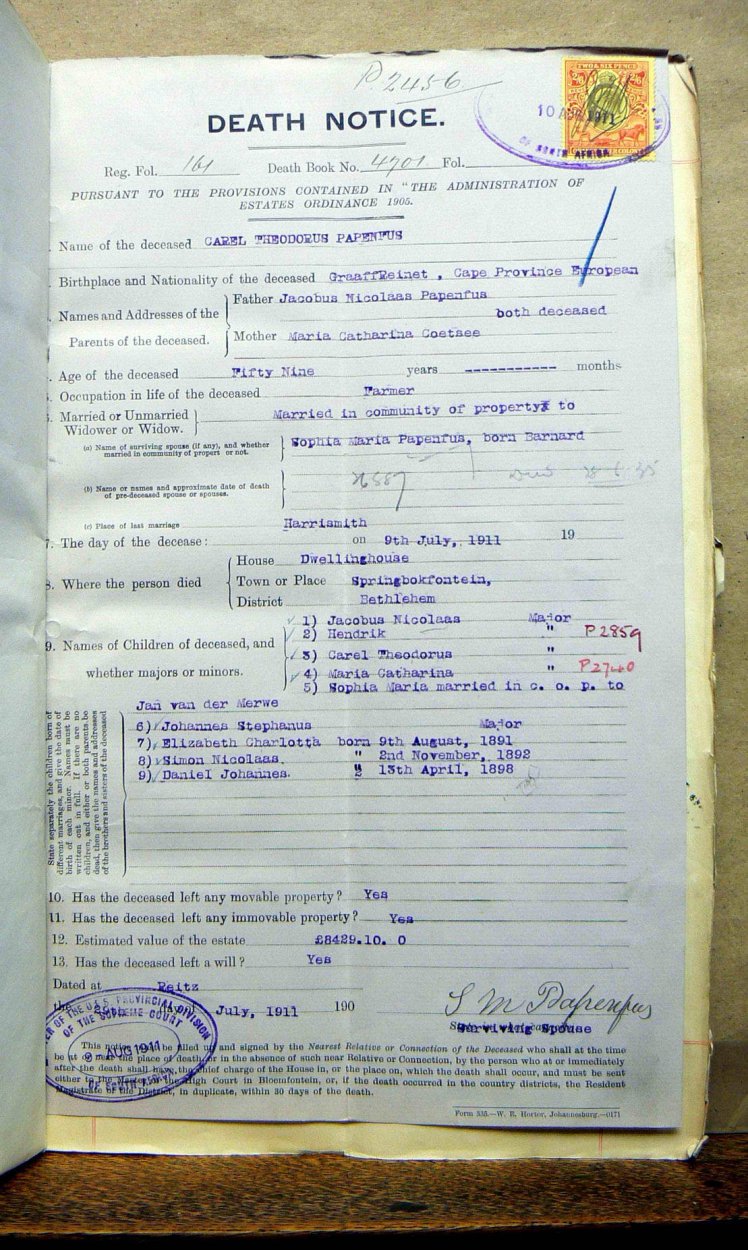 P 2456
TWO & SIX PENCE
2/6 2/6
10 AUG 1911
OF SOUTH AFRICA
DEATH NOTICE.
Reg. Fol. 161 Death Book No. 4701 Fol.
PURSUANT TO THE PROVISIONS CONTAINED IN "THE ADMINISTRATION OF
ESTATES ORDINANCE 1905.
. Name of the deceased CAREL THEODORUS PAPENFUS
. Birthplace and Nationality of the deceased GraaffReinet , Cape Province European
Father Jacobus Nicolaas Papenfus
. Names and Addresses of the both deceased
Parents of the deceased. Mother Maria Catharina Coetsee
. Age of the deceased Fifty Nine years ----------- months
. Occupation in life of the deceased Farmer
. Married or Unmarried Married in community of property to
Widower or Widow.
(a) Name of surviving spouse (if any), and whether Sophia Maria Papenfus, born Barnard
married in community of propert or not.
(b) Name or names and approximate date of death
of pre-deceased spouse or spouses.
(c) Place of last marriage Harrismith
7. The day of the decease: on 9th July, 1911 19
House Dwellinghouse
8. Where the person died Town or Place Springbokfontein,
District Bethlehem
1) Jacobus Nicolaas Major
2) Hendrik " P2859
9. Names of Children of deceased, and 3) Carel Theodorus "
whether majors or minors. 4) Maria Catharina " P2740
5) Sophia Maria married in c. o. p. to
Jan van der Merwe
6) Johannes Stephanus Major
7) Elizabeth Charlotta born 9th August, 1891
8) Simon Nicolaas. " 2nd November, 1892
9) Daniel Johannes. " 13th April, 1898
State separately the children born of
different marriages, and give the date of
birth of each minor. Names must be
written out in full. If there are no
children, and either or both parents be
dead, then give the names and addresses
of the brothers and sisters of the deceased
10. Has the deceased left any movable property? Yes
11. Has the deceased left any immovable property? Yes
12. Estimated value of the estate £8429.10. 0
13. Has the deceased left a will? Yes
Dated at Reitz
the day of July, 1911 190
S M Papenfus
Surviving Spouse
OF THE O.F.S. PROVINCIAL DIVISION
OF THE SUPREME COURT
AUG 1911
OF SOUTH AFRICA
This notice to be filled up and signed by the Nearest Relative or Connection of the Deceased who shall at the time
be at or near the place of death, or in the absence of such near Relative or Connection, by the person who at or immediately
after the death shall have the chief charge of the House in, or the place on, which the death shall occur, and must be sent
either to the Master of the High Court in Bloemfontein, or, if the death occurred in the country districts, the Resident
Magistrate of the District, in duplicate, within 30 days of the death.
Form 535.—W. E. Horter, Johannesburg.—0171